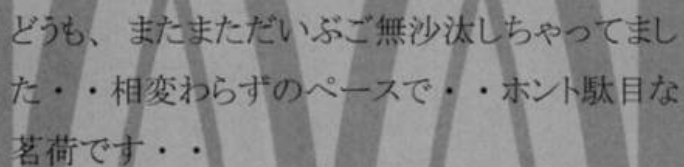 どうも、またまただいぶご無沙汰しちゃってまし
た・・相変わらずのペースで・・ホント駄目な
茗荷です・・